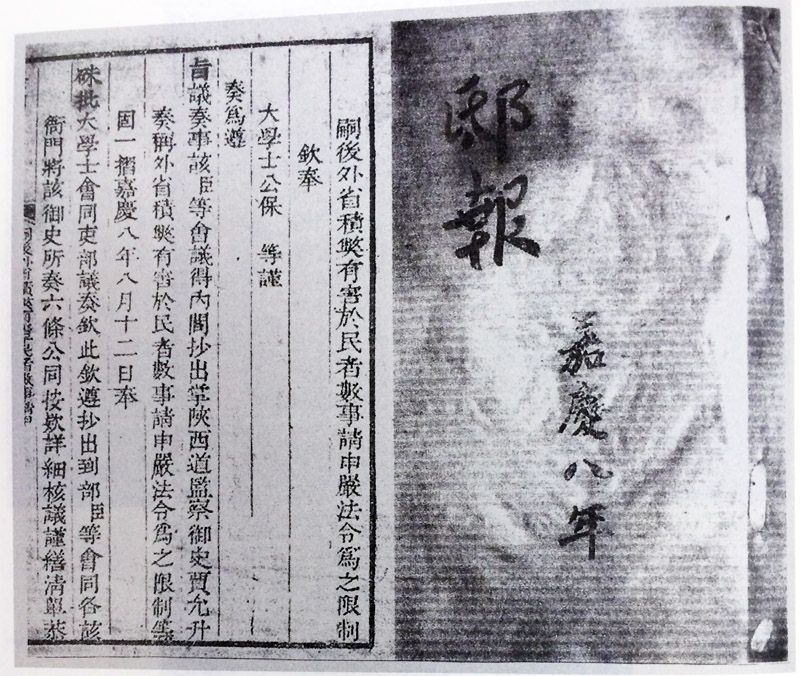 邸報
嘉慶八年
嗣後外省積獘有害於民者數事請申嚴法令爲之限制
欽奉
大學士公保 等謹
奏爲遵
旨議奏事該臣等會議得内閣抄出掌陝西道監察御史賈允升
奏稱外省積獘有害於民者數事請申嚴法令爲之限制等
因一摺嘉慶八年八月十二日奉
硃批大學士會同吏部議奏欽此欽遵抄出到部臣等會同各該
衙門將該御史所奏六條公同按欵詳細核議謹繕清單恭